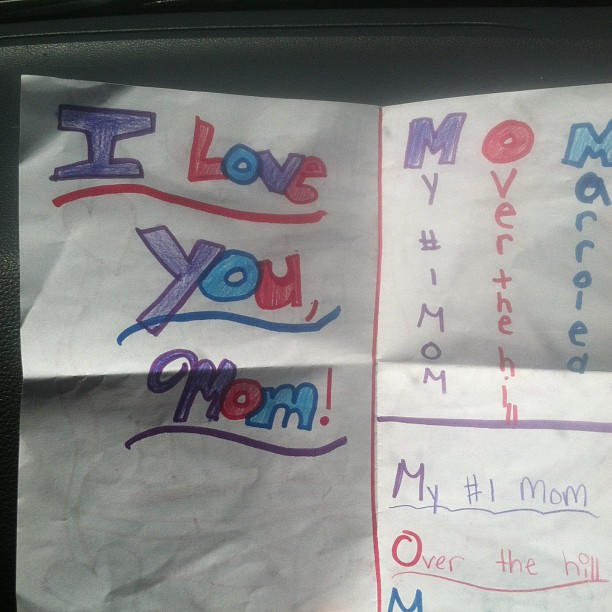 I Love
You,
Mom!
MOM
My #1 MOM
Over the hill
Marroied
My #1 Mom
Over the hill
M